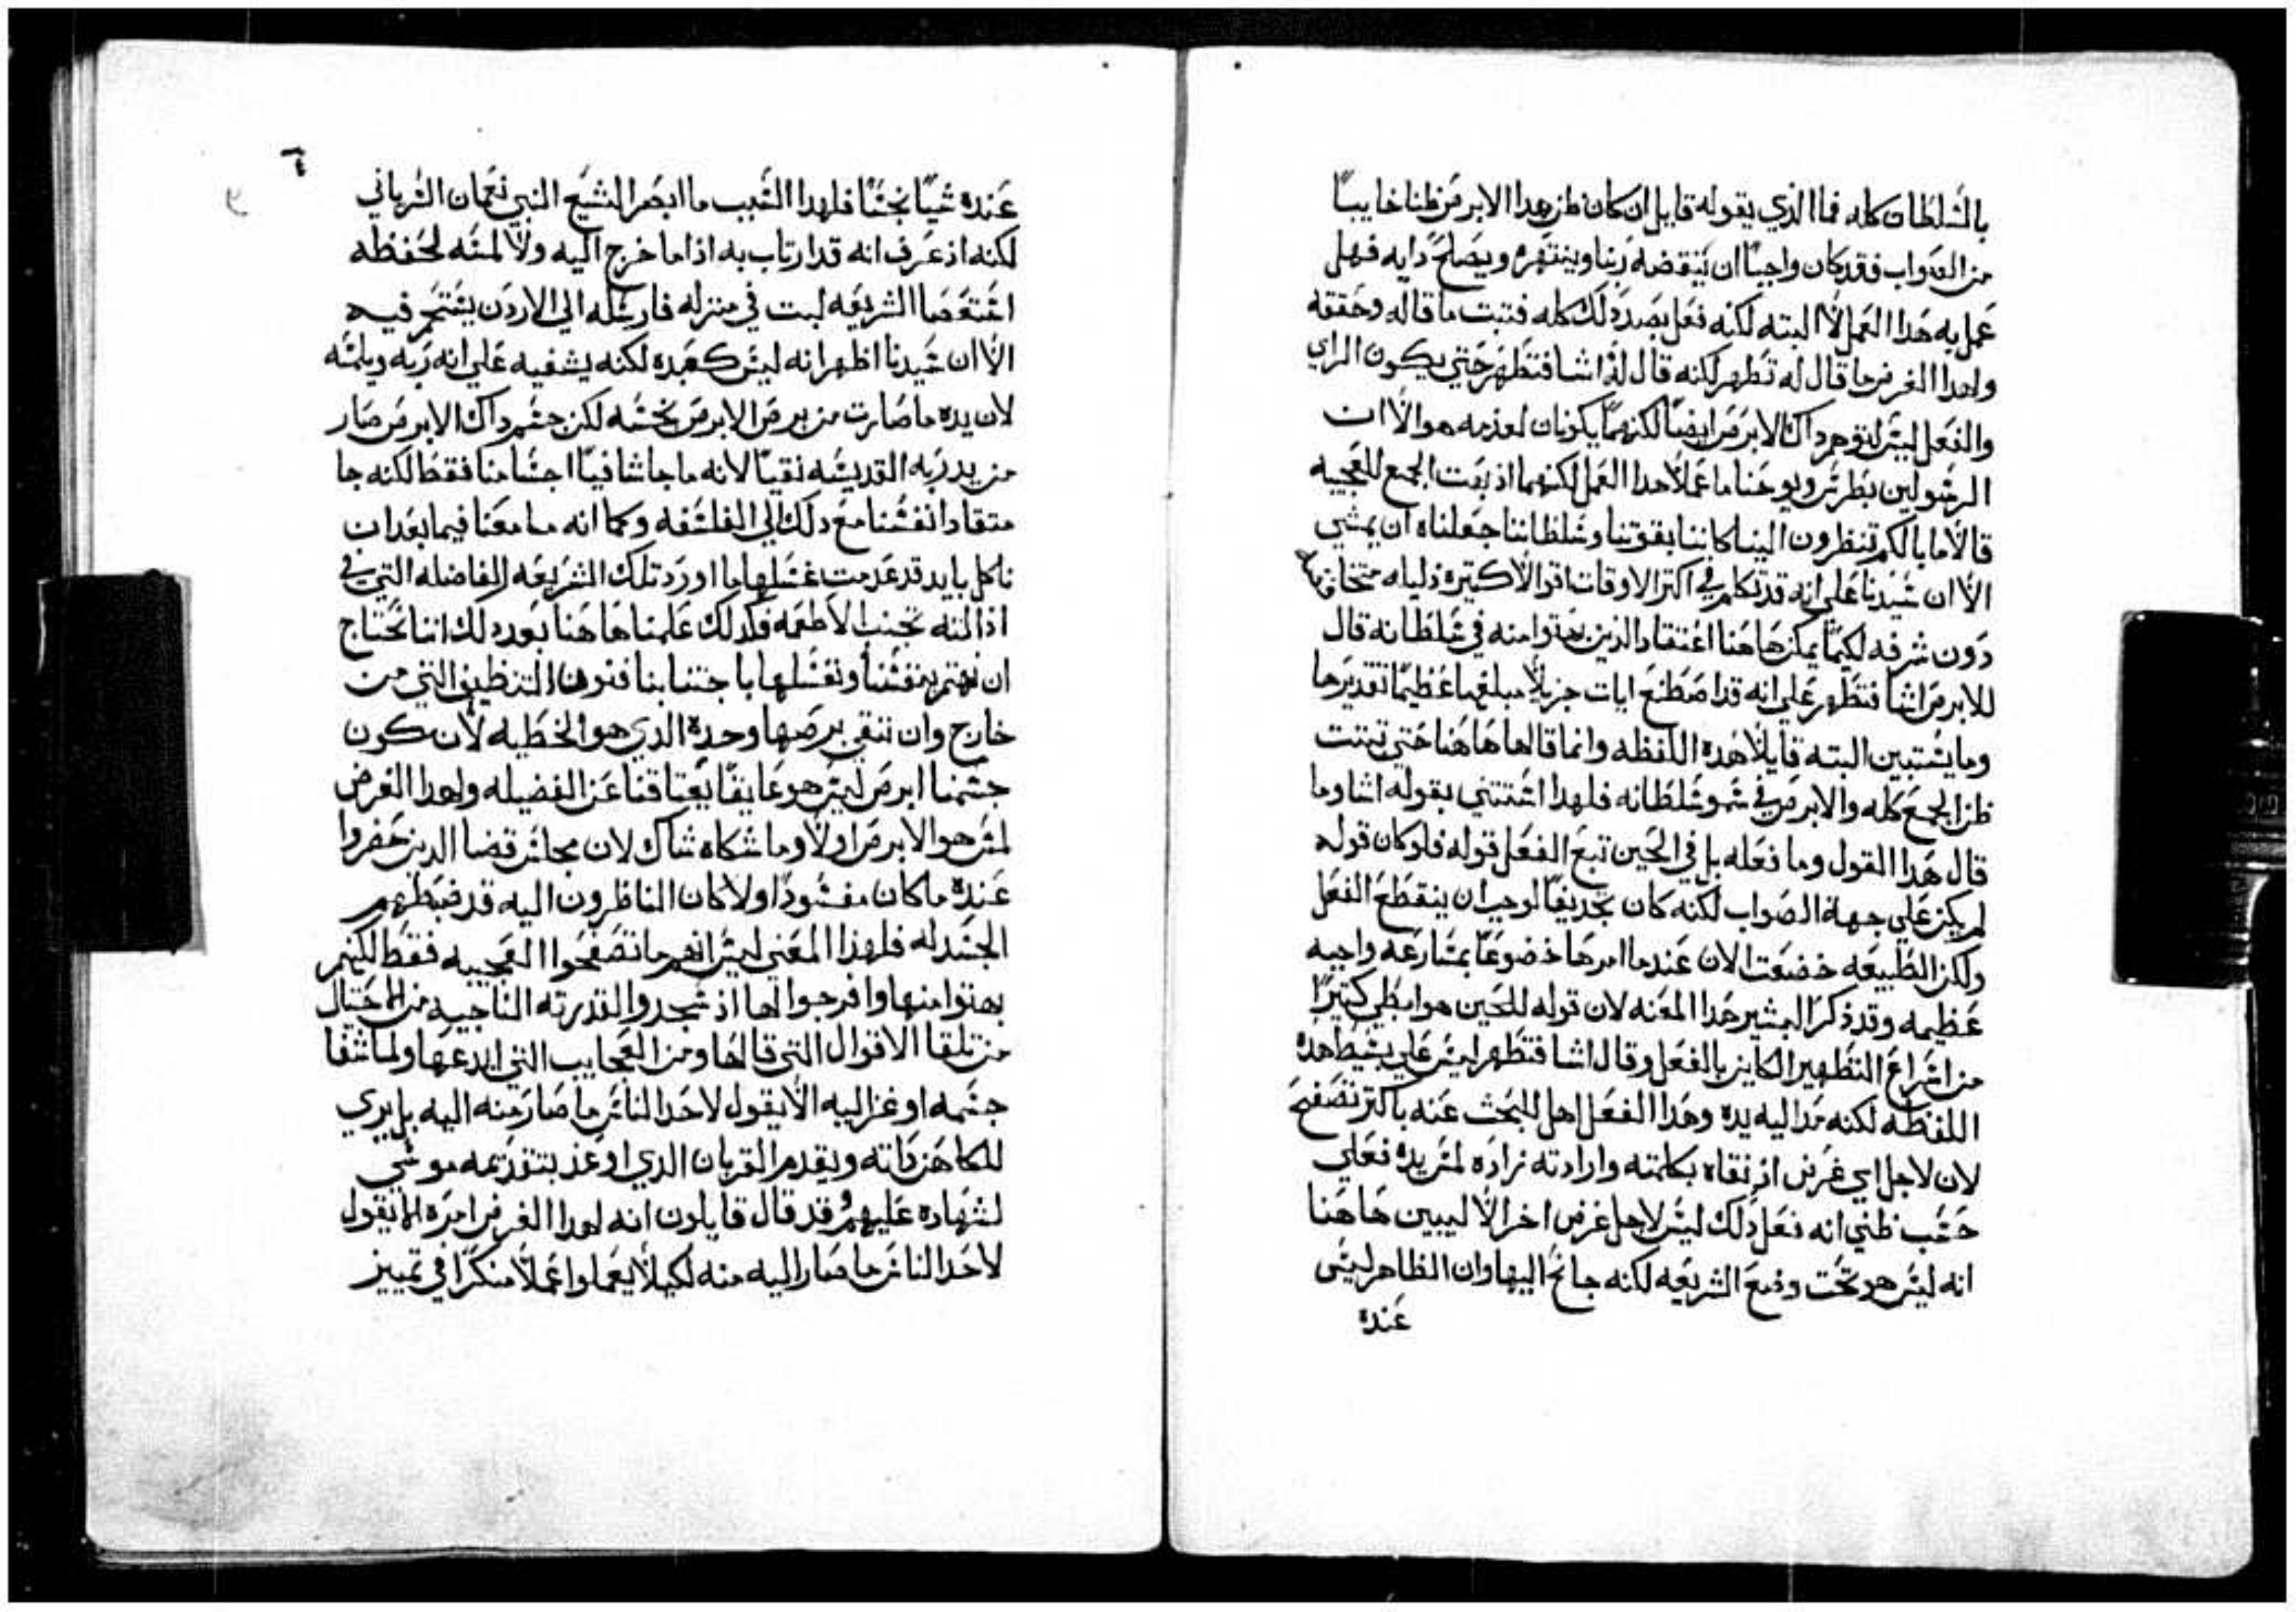 بالسلطان كله فما الذي يقوله قايل ان كان ظن هدا الابرص ظنا خايبا
من الصواب فقد كان واجبا ان ينقضه ربنا وينتهره ويصلح رايه فهل
عمل به هدا العمل لا البته لكنه فعل بضد دلك كله فتبت ما قاله وحققه
ولهدا الغرض ما قال له تطهر لكنه قال له اشا فتطهر حتي يكون الراي
والفعل ليس لتوهم داك الابرص ايضا لكنهما يكونان لعزمه هو الا ان
الرسولين بطرس ويوحنا ما عملا هدا العمل لكنهما اذ بهت الجمع للعجيبه
قالا ما بالكم تنظرون الينا كاننا بقوتنا وسلطاننا جعلناه ان يمشي
الا ان سيدنا علي انه قد تكلم في اكتر الاوقات اقوالا كتيره ذليله متخلفه
دون شرفه لكيما يمكن هاهنا اعتقاد الذين بهتوا منه في سلطانه قال
للابرص اشا فتطهر علي انه قد اصطنع ايات جزيلا مبلغها عظيما تقديرها
وما يستبين البته قايلا هده اللفظه وانما قالها هاهنا حتي تتبت
ظن الجمع كله والابرص في سمو سلطانه فلهدا استتني بقوله اشا وما
قال هدا القول وما فعله بل في الحين تبع الفعل قوله فلو كان قوله
لم يكن علي جهة الصواب لكنه كان تجديفا لوجب ان ينقطع الفعل
ولكن الطبيعه خضعت الان عندما امرها خضوعا بمسارعه واجبه
عظيمه وقد ذكر البشير هدا المعنه لان قوله للحين هو ابطي كتيرا
من اسراع التطهير الكاين بالفعل وقال اشا فتطهر ليس علي بسيط هده
اللفظه لكنه مد اليه يده وهدا الفعل اهل للبحث عنه باكتر تصفح
لان لاجل اي غرض اذ نقاه بكلمته وارادته زاده لمس يده فعلي
حسب ظني انه فعل دلك ليس لاجل غرض اخر الا ليبين هاهنا
انه ليس هو تحت وضع الشريعه لكنه جانح اليها وان الظاهر ليس
عنده
عنده شيا نجسا فلهدا السبب ما ابصر اليشع النبي نعمان السرياني
لكنه اذ عرف انه قد ارتاب به اذ اما خرج اليه ولا لمسه لحفظه
الشريعه لبت في منزله فارسله الي الاردن يستحم فيه
الا ان سيدنا اظهر انه ليس كعبده لكنه يشفيه علي انه ربه ويلمسه
لان يده ما صارت من برص الابرص نجسه لكن جسم داك الابرص صار
من يد ربه القديسه نقيا لانه ما جا شافيا اجسامنا فقط لكنه جا
مقتادا نفسنا مع دلك الي الفلسفه وكما انه ما معنا فيما بعد ان
ناكل بايد قد عدمت غسلها اورد تلك الشريعه الفاضله التي في
تجنب الاطعمه فكدلك علمنا هاهنا بعد دلك اننا نحتاج
ان نهتم بنفسنا ونغسلها باجتنابنا فنون التنظيف التي من
خارج وان ننقي برصها وحده الدي هو الخطيه لان كون
جسمنا ابرص ليس هو عايقا يعتاقنا عن الفضيله ولهدا الغرض
لمس هو الابرص اولا وما شكاه شاك لان مجلس قضا الدين حضروا
عنده ما كان مفسودا ولا كان الناظرون اليه قد ضبطهم
الحسد له فلهذا المعني ليس انهم ما تصفحوا العجيبه فقط لكنهم
بهتوا منها وافرجوا لها اذ سجدوا لقدرته الناجيه من الاحتيال
من تلقا الاقوال التي قالها ومن العجايب التي ابدعها ولما شفا
جسمه اوعز اليه الا يقول لاحد الناس ما صار منه اليه بل يري
للكاهن داته ويقدم القربان الدي اوعز بتقدمه موسي
لشهاده عليهم وقد قال قايلون انه لهدا الغرض امره الا يقول
لاحد الناس ما صار اليه منه لكيلا يعملوا عملا منكرا في تمييز